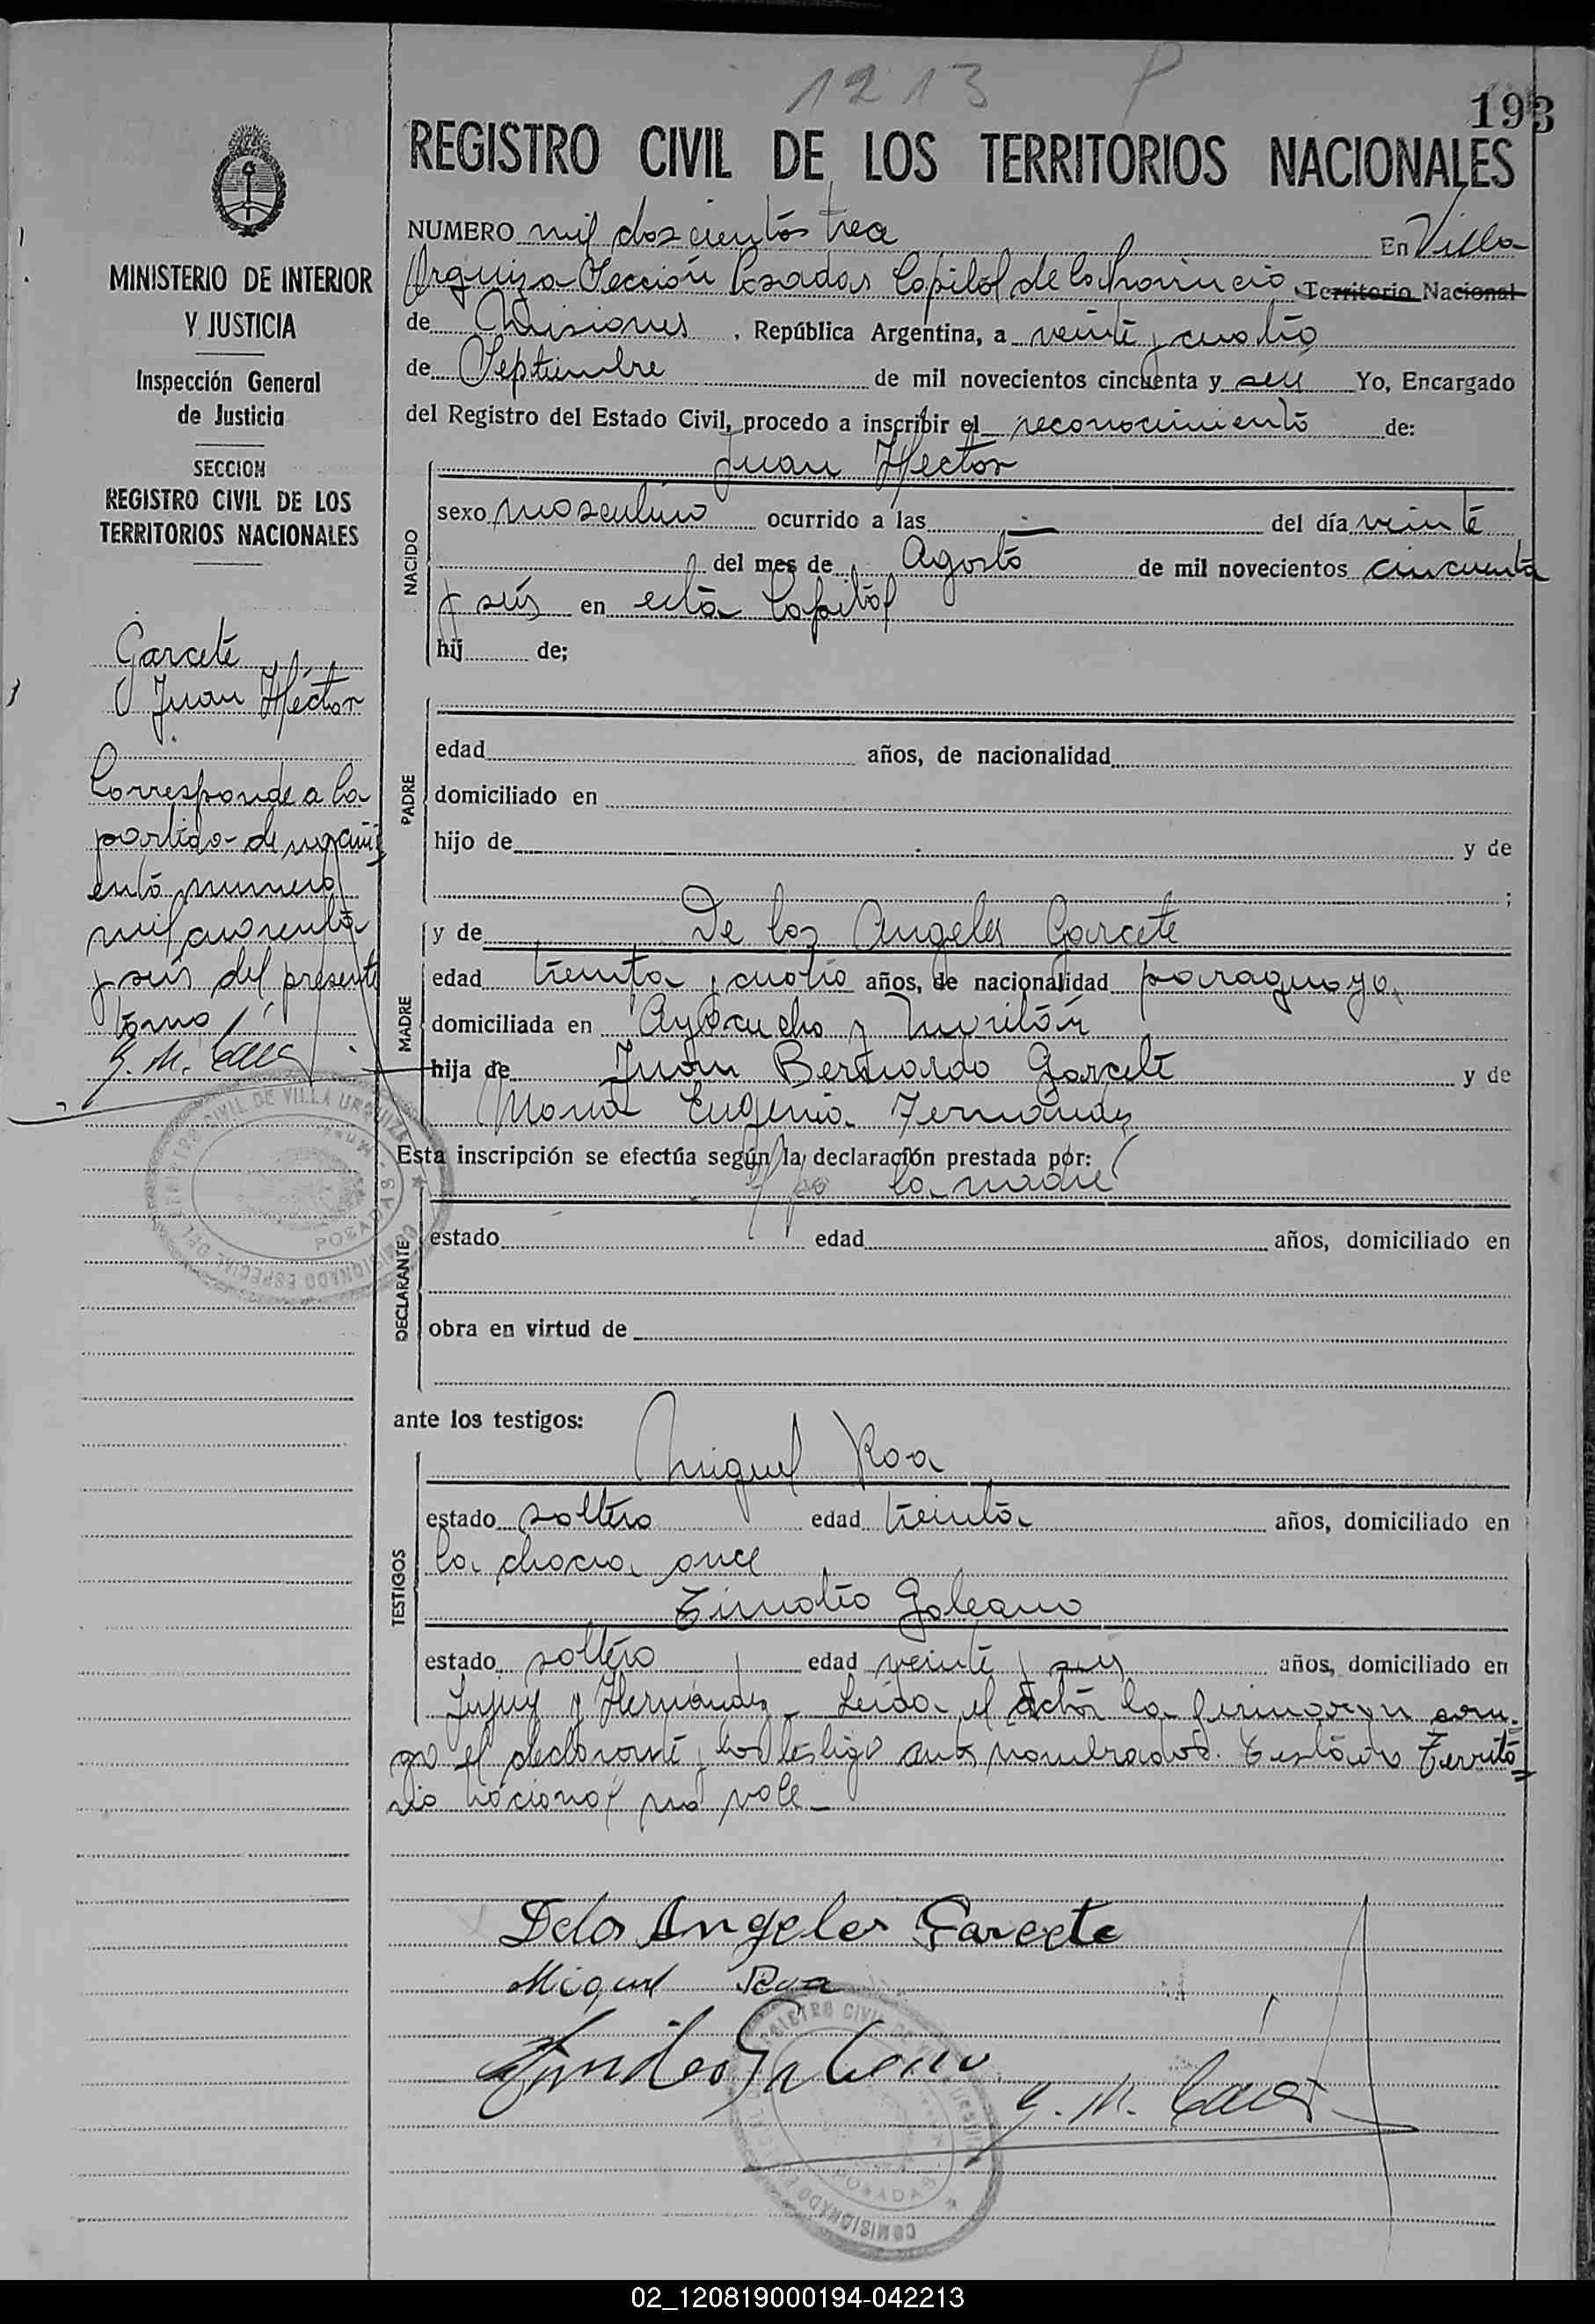 1213 P
193
REGISTRO CIVIL DE LOS TERRITORIOS NACIONALES
NUMERO mil doscientos trea En Villa
Urquiza Sección Posadas Capital de la Provincia, Territorio Nacional
de Misiones, República Argentina, a veinte y cuatro
de Septiembre de mil novecientos cincuenta y seis Yo, Encargado
del Registro del Estado Civil, procedo a inscribir el reconocimiento de:
Juan Hector
NACIDO
sexo masculino ocurrido a las — del día veinte
del mes de Agosto de mil novecientos cincuenta
y seis en esta Capital
hij de;
PADRE
edad años, de nacionalidad
domiciliado en
hijo de y de
;
MADRE
y de De los Angeles Garcete
edad treinta y cuatro años, de nacionalidad paraguaya,
domiciliada en Ayacucho y
hija de Juan Bernardo Garcete y de
Maria Eugenia Fernández
Esta inscripción se efectúa según la declaración prestada por:
la madre
DECLARANTE
estado edad años, domiciliado en
obra en virtud de
ante los testigos:
TESTIGOS
Miguel Roa
estado soltero edad treinta años, domiciliado en
la chacra once
Timoteo Galeano
estado soltero edad veinte y seis años, domiciliado en
Jujuy y Hernández - Leída el acta la firmaron conmi=
go el declarante y los testigo antes nombrados. Testado Territo=
rio Nacional no vale -
Delos Angeles Garcete
Miguel Roa
Timoteo Galeano
MINISTERIO DE INTERIOR
Y JUSTICIA
Inspección General
de Justicia
SECCION
REGISTRO CIVIL DE LOS
TERRITORIOS NACIONALES
Garcete
Juan Héctor
Corresponde a la
partida de naçimi=
ento numero
mil cuarenta
y seis del presente
tomo
REGISTRO CIVIL DE VILLA URQUIZA
POSADAS
COMISIONADO ESPECIAL DEL
REGISTRO CIVIL DE
POSADAS
COMISIONADO
02_120819000194-042213